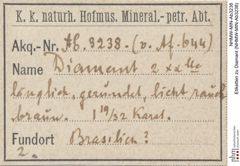 K. k. naturh. Hofmus. Mineral.-petr. Abt.
Akq.-Nr. Ab. 8238. (v. Af. 644)
Name Diamant 2 xx lle
länglich, gerundet, licht rauch
braun. 1 19/32 Karat.
Fundort Brasilien?
2.
NHMW-MIN-A0/8238
Etiketten zu Diamant (NHMW-MIN-A0/8238)